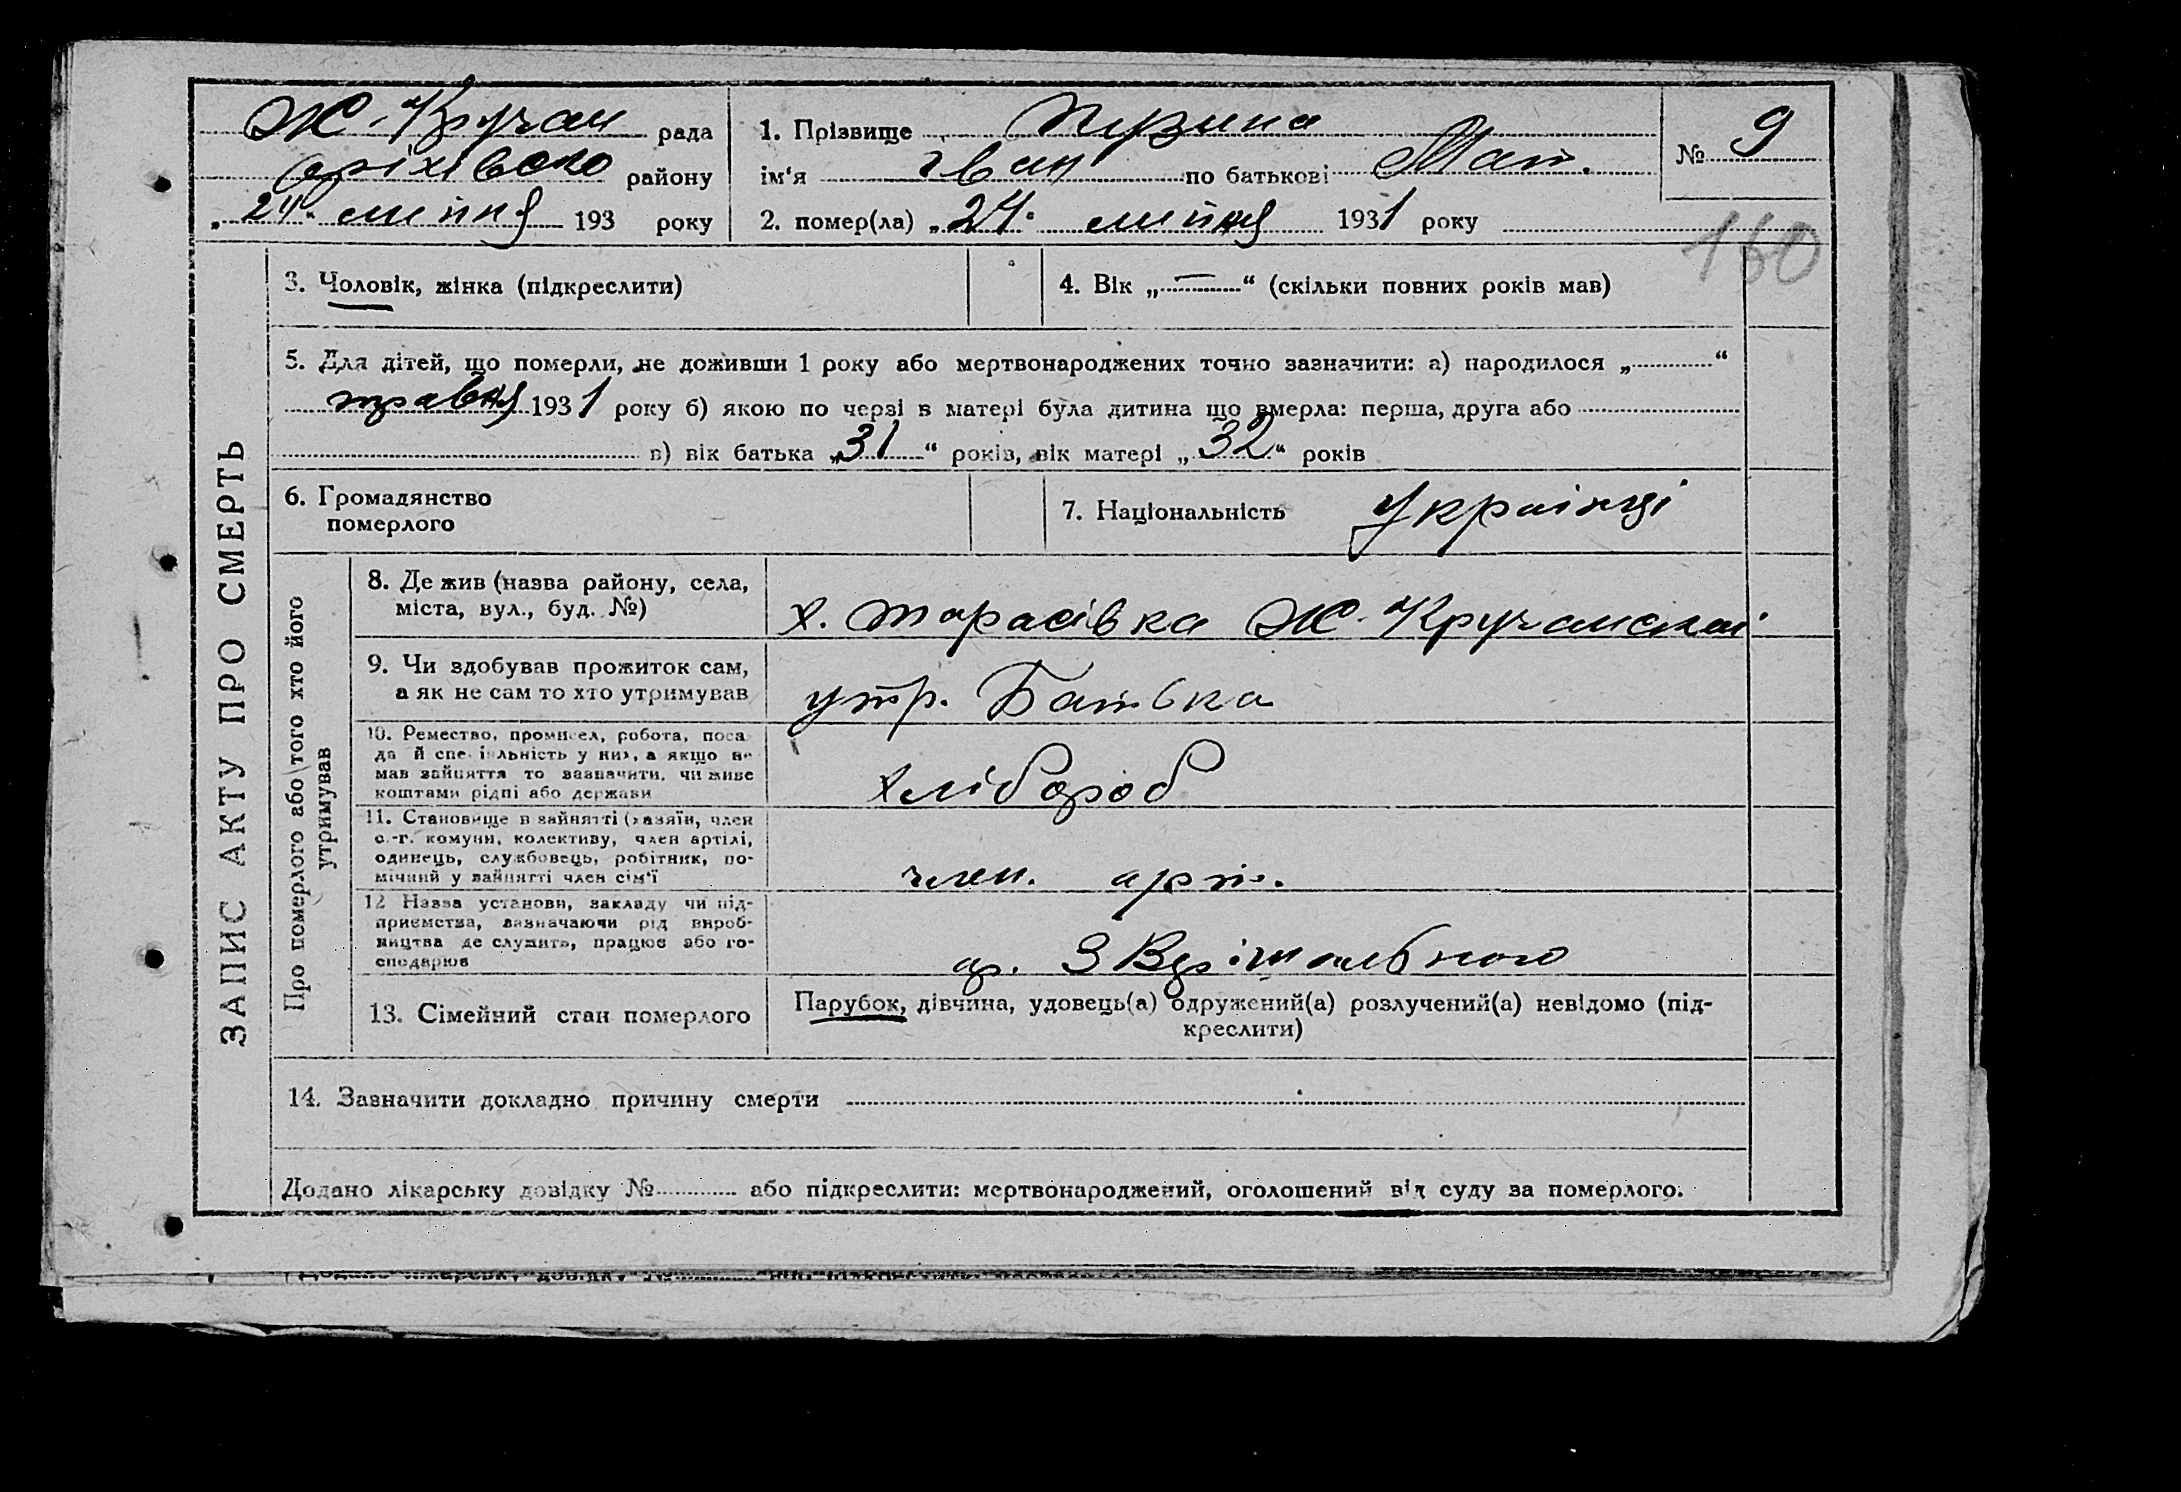 Ж. Кручан рада
оріхівсько району
„24“ липня 193 року
1. Прізвище Пузина
ім'я Іван по батькові Мат.
2. помер(ла) „24“ липня 1931 року
№ 9
160
3. Чоловік, жінка (підкреслити)
4. Вік „—“ (скільки повних років мав)
5. Для дітей, що померли, не доживши 1 року або мертвонароджених точно зазначити: а) народилося „ “
травня 1931 року б) якою по черзі в матері була дитина що вмерла: перша, друга або
в) вік батька „31“ років, вік матері „32“ років
6. Громадянство
померлого
7. Національність Українці
ЗАПИС АКТУ ПРО СМЕРТЬ
Про померлого або того хто його
утримував
8. Де жив (назва району, села,
міста, вул., буд. №)
х. Тарасівка Ж. Кручанської
9. Чи здобував прожиток сам,
а як не сам то хто утримував
утр. Батька
10. Ремество, промисел, робота, поса
да й спеціяльність у них, а якщо не
мав зайняття то зазначити, чи живе
коштами рідні або держави
хлібороб
11. Становище в зайнятті (хазяїн, член
с.-г. комуни, колективу, член артілі,
одинець, службовець, робітник, по-
мічний у зайнятті член сім'ї
член. арт.
12 Назва установи, закладу чи під-
приємства, зазначаючи рід вироб-
ництва де служить, працює або го-
сподарює
ар. 3 Вирішального
13. Сімейний стан померлого
Парубок, дівчина, удовець(а) одружений(а) розлучений(а) невідомо (під-
креслити)
14. Зазначити докладно причину смерти
Додано лікарську довідку № або підкреслити: мертвонароджений, оголошений від суду за померлого.